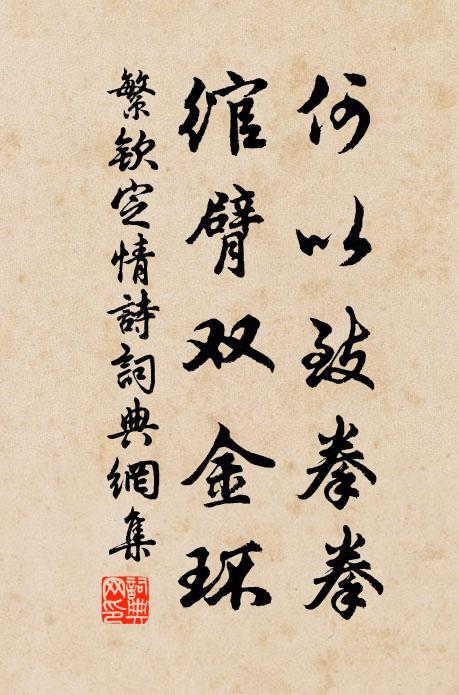 何以致拳拳
绾臂双金环
繁钦定情詩詞典網集
詞典網印